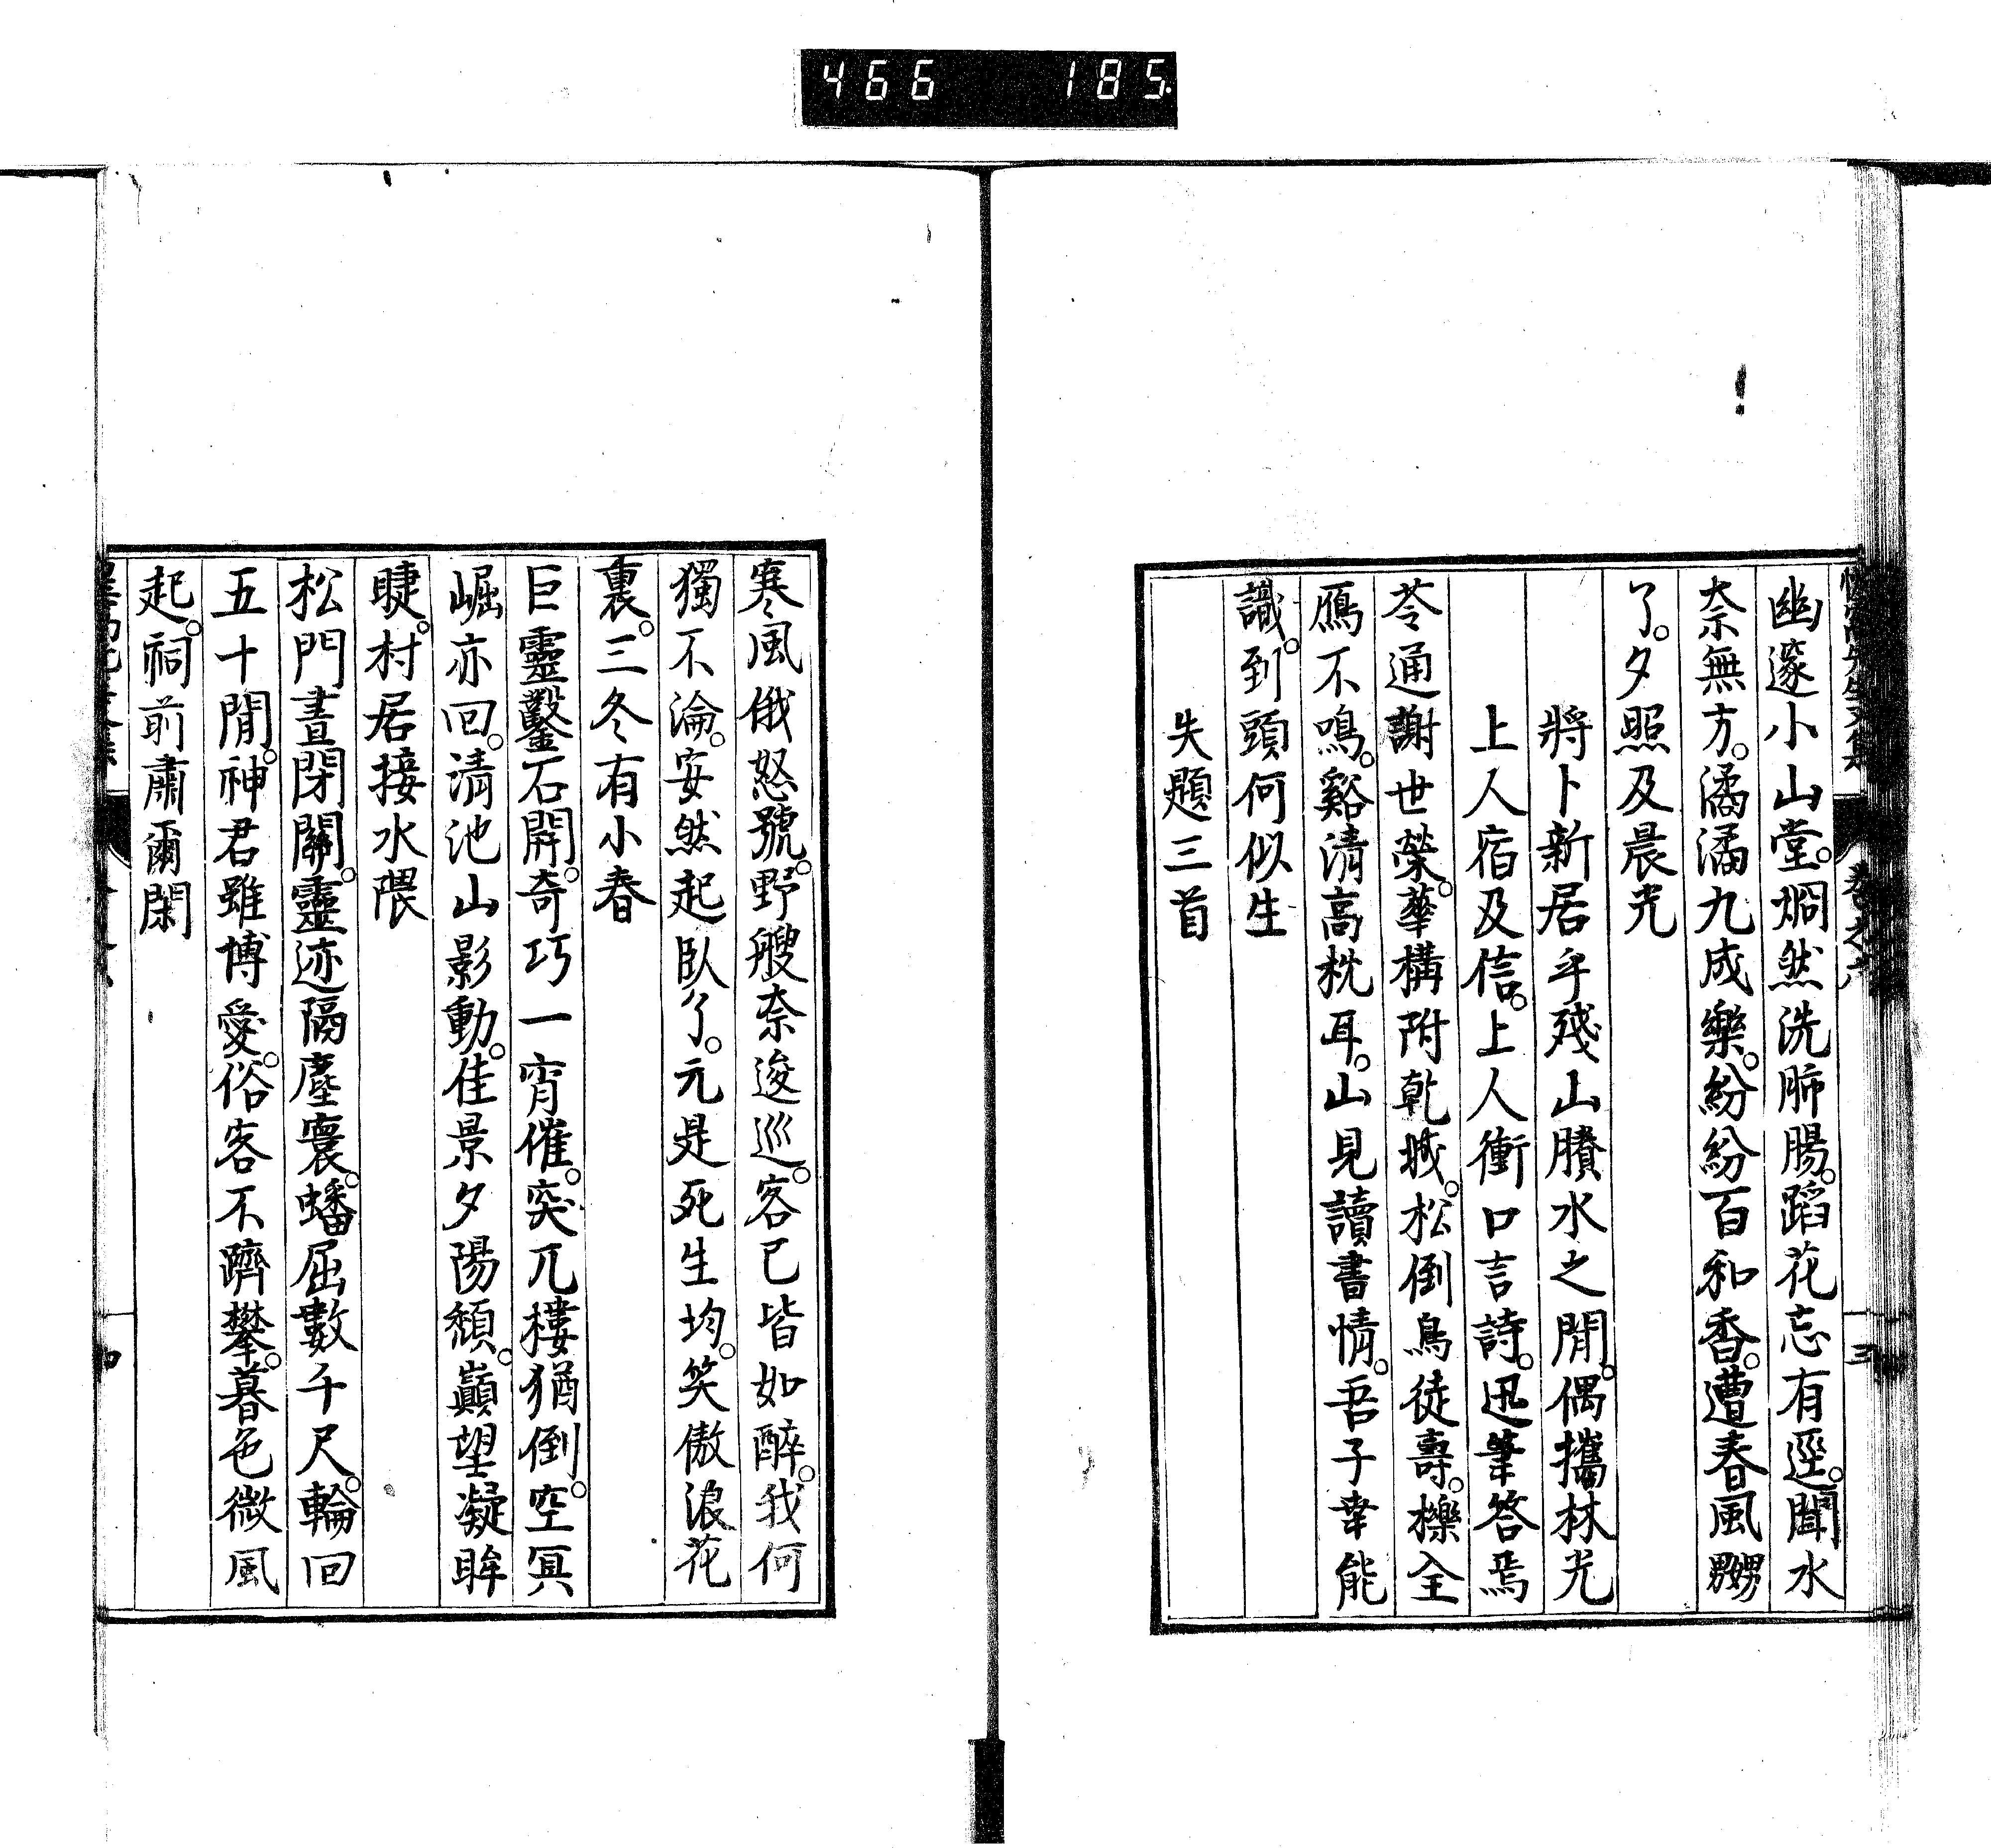 466 185
幽邃小山堂。烱然洗肺腸。蹈花忘有逕。聞水
奈無方。潏潏九成樂。紛紛百和香。遭春風嬲
了。夕照及晨光
將卜新居乎殘山賸水之閒。偶攜林光
上人宿及信。上人衝口言詩。迅筆答焉
苓通謝世榮。華構附乾城。松倒鳥徒壽。櫟全
鴈不鳴。谿清高枕耳。山見讀書情。吾子幸能
識。到頭何似生
失題三首
寒風俄怒號。野艘奈逡巡。客已皆如醉。我何
獨不淪。安然起臥了。元是死生均。笑傲浪花
裏。三冬有小春
巨靈鑿石開。奇巧一宵催。突兀樓猶倒。空冥
崛亦回。清池山影動。佳景夕陽頹。巔望凝眸
睫。村居接水隈
松門晝閉關。靈迹隔塵寰。蟠屈數千尺。輪回
五十閒。神君雖博愛。俗客不躋攀。暮色微風
起。祠前肅爾閑